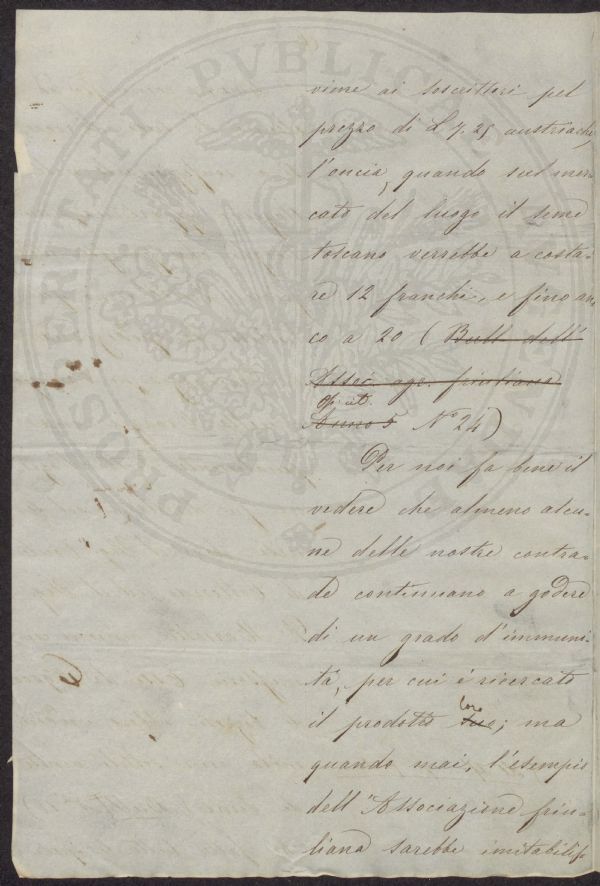 PROSPERITATI PVBLICAE
viene ai soscrittori pel
prezzo di L 7.25 austriache
l'oncia, quando sul mer-
cato del luogo il seme
toscano verrebbe a costa-
re 12 franchi, e fino an-
co a 20 (Bull dell'
Assoc. agr. friulana
op. cit.
Anno 5 N.o 24)
Per noi fa bene il
vedere che almeno alcu-
ne delle nostre contra-
de continuano a godere
di un grado d'immuni-
tà, per cui è ricercato
loro
il prodotto suo; ma
quando mai, l'esempio
dell'Associazione friu-
liana sarebbe imitabilis